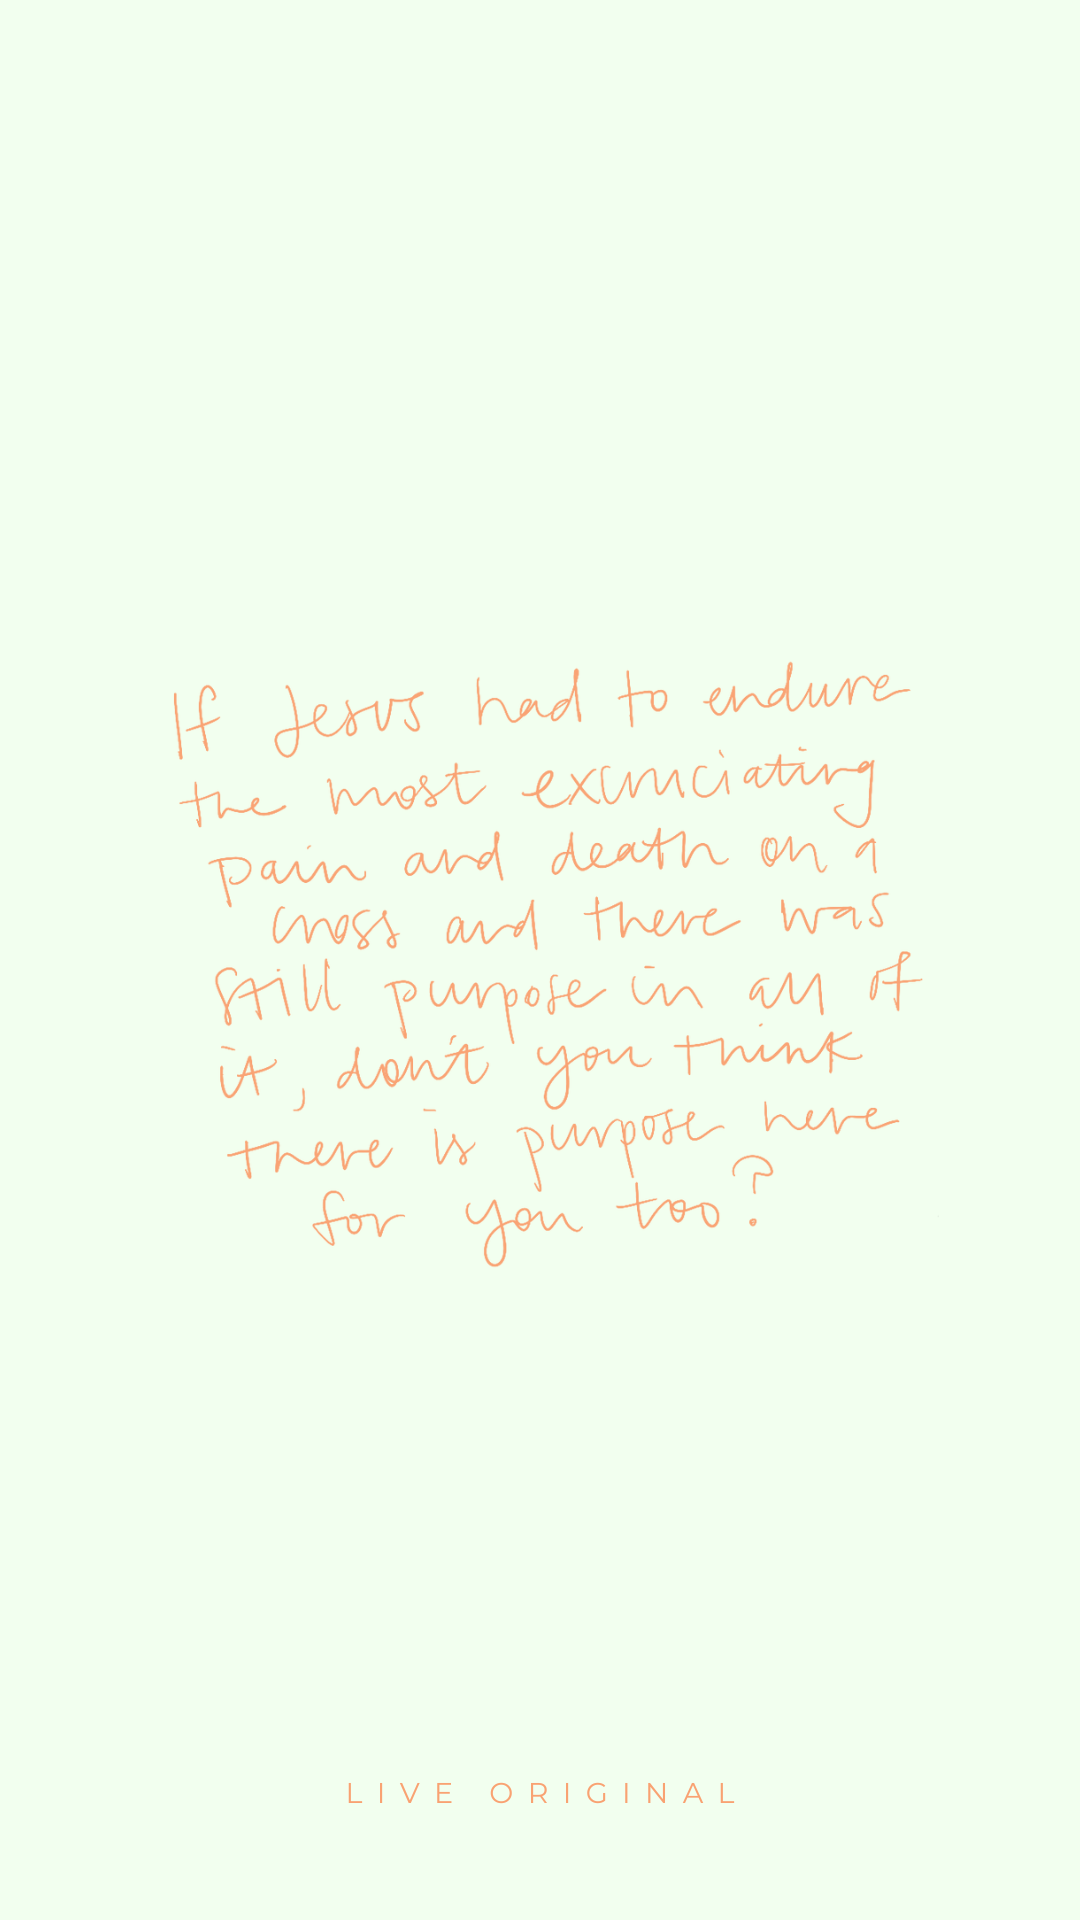 If Jesus had to endure
the most excruciating
pain and death on a
cross and there was
still purpose in all of
it, don't you think
there is purpose here
for you too?
LIVE ORIGINAL